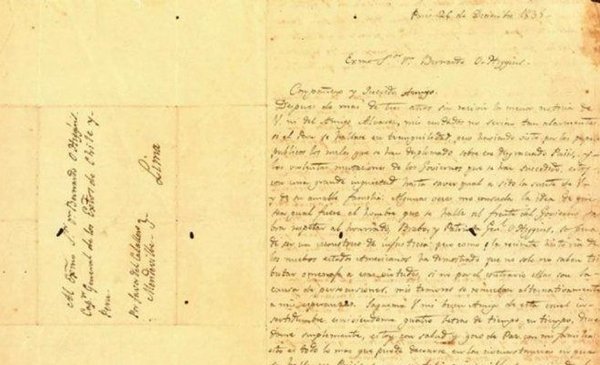 Paris 26 de Diciembre 1835
Exmo Sor Dn Bernardo O Higgins.
Compañero y Querido Amigo.
Despues de mas de tres años sin recivir la menor noticia de
V. ni del Amigo Alvarez, mis cuidados no serian tan alarmantes
si el Peru se hallase en tranquilidad, pero haviendo visto por los papeles
publicos los males que se han desplomado sobre ese Desgraciado Pais, y
las violentas mutaciones de los Gobiernos que se han sucedido, estoy
con una grande inquietud hasta saver qual es la suerte de V.
y de su amable familia. Algunas veces me consuela la idea de que
sea qual fuere el hombre que se halle al frente del Gobierno sa
bra respetar al honrado, Brabo, y Patriota Genl O Higgins,
de ser un monstruo de injusticia; pero como la reciente historia de
los nuebos estados Americanos ha demostrado que no solo no saben tri
butar omenage a las virtudes, si no por el contrario ellas son la
causa de persecuciones, mis temores se renuevan alternativamente
a mis esperanzas. Saqueme V. mi buen Amigo de esta cruel in
sertidumbre, embiandome quatro letras de tiempo, en tiempo,
dome simplemente, estoy con salud y gozo de Paz con mi familia:
esto es todo lo mas que puede desearse en las circunstancias en que
Al Exmo Sor Dn Bernardo O Higgins.
Capn General de los Estados de Chile y
Peru
Por favor del Caballero
Mendeville.
Lima